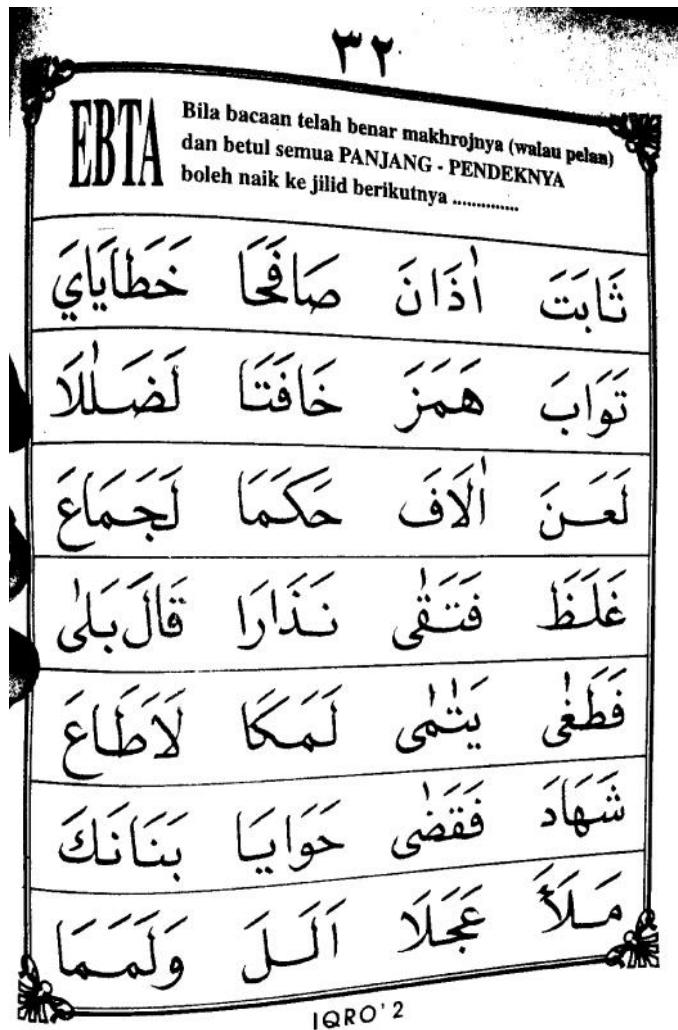 ٣٢
EBTA
Bila bacaan telah benar makhrojnya (walau pelan)
dan betul semua PANJANG - PENDEKNYA
boleh naik ke jilid berikutnya ..............
ثَابَتَ اٰذَانَ صَافَحَا خَطَايَايَ
تَوَابَ هَمَزَ خَافَتَا لَضَلٰلَا
لَعَنَ اٰلَافَ حَكَمَا لَجَمَاعَ
غَلَظَ فَتَقٰى نَذَارَا قَالَ بَلٰى
فَطَغٰى يَتٰمٰى لَمَكَا لَاطَاعَ
شَهَادَ فَقَضٰى حَوَايَا بَنَانَكَ
مَلَأَ عَجَلَا اَلَلَ وَلَمَمَا
IQRO' 2